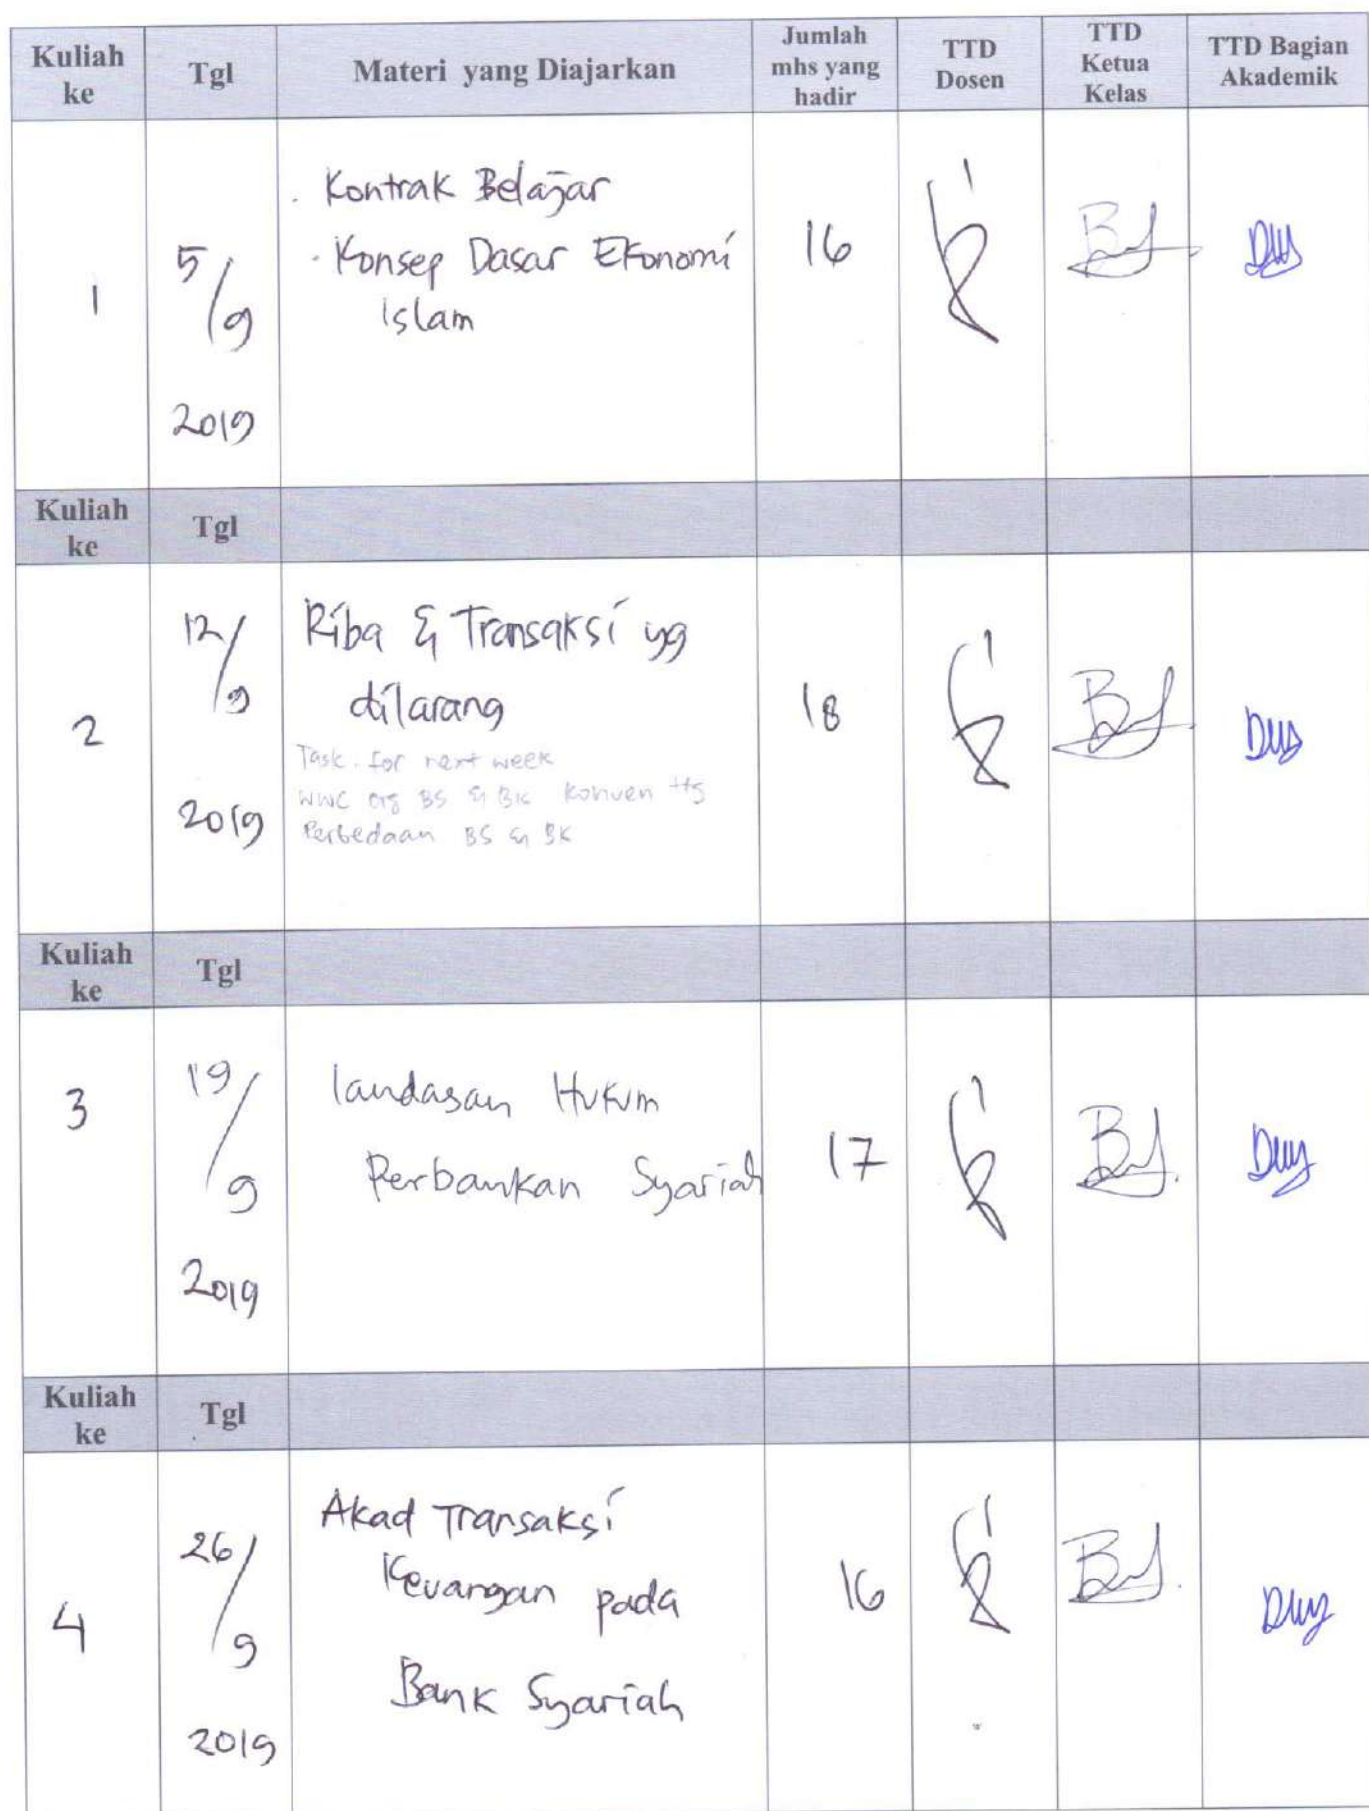 Kuliah ke Tgl Materi yang Diajarkan Jumlah mhs yang hadir TTD Dosen TTD Ketua Kelas TTD Bagian Akademik
. Kontrak Belajar
1 5/9 . Konsep Dasar Ekonomi 16
Islam
2019
Kuliah ke Tgl
12/9 Riba & Transaksi yg
2 dilarang 18
Task. for next week
WWC org BS & BK Konven ttg
2019 Perbedaan BS & BK
Kuliah ke Tgl
3 19/9 landasan Hukum
Perbankan Syariah 17
2019
Kuliah ke Tgl
26/9 Akad Transaksi
4 Keuangan pada 16
Bank Syariah
2019